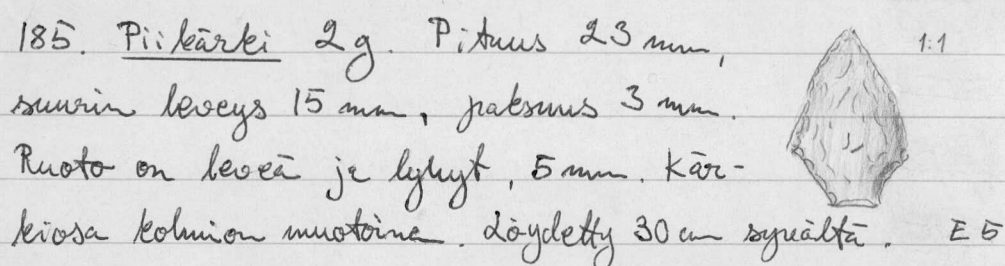 185. Piikärki 2g. Pituus 23 mm, 1:1
suurin leveys 15 mm, paksuus 3 mm.
Ruoto on leveä ja lyhyt, 5 mm. Kär-
kiosa kolmion muotoinen. Löydetty 30 cm syvältä. E5